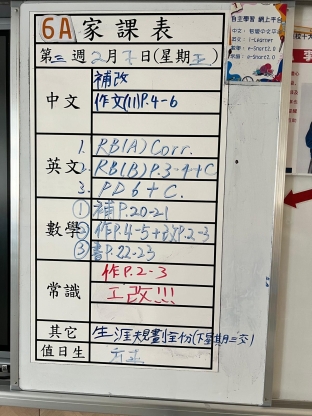 6A 家課表
第三週2月7日(星期五)
中文
補改
作文(11)P.4-6
英文
1. RB(A) Corr.
2. RB(B)P.3-4+C
3. PD6+C.
數學
① 補P.20-21
② 作P.4-5+3XP.2-3
③ 書P.22-23
常識
作P.2-3
工改!!!
其它
生涯規劃全份(下星期三交)
值日生
自主學習 網上平台
i-Learner
e-Short2.0
e-Short2.0